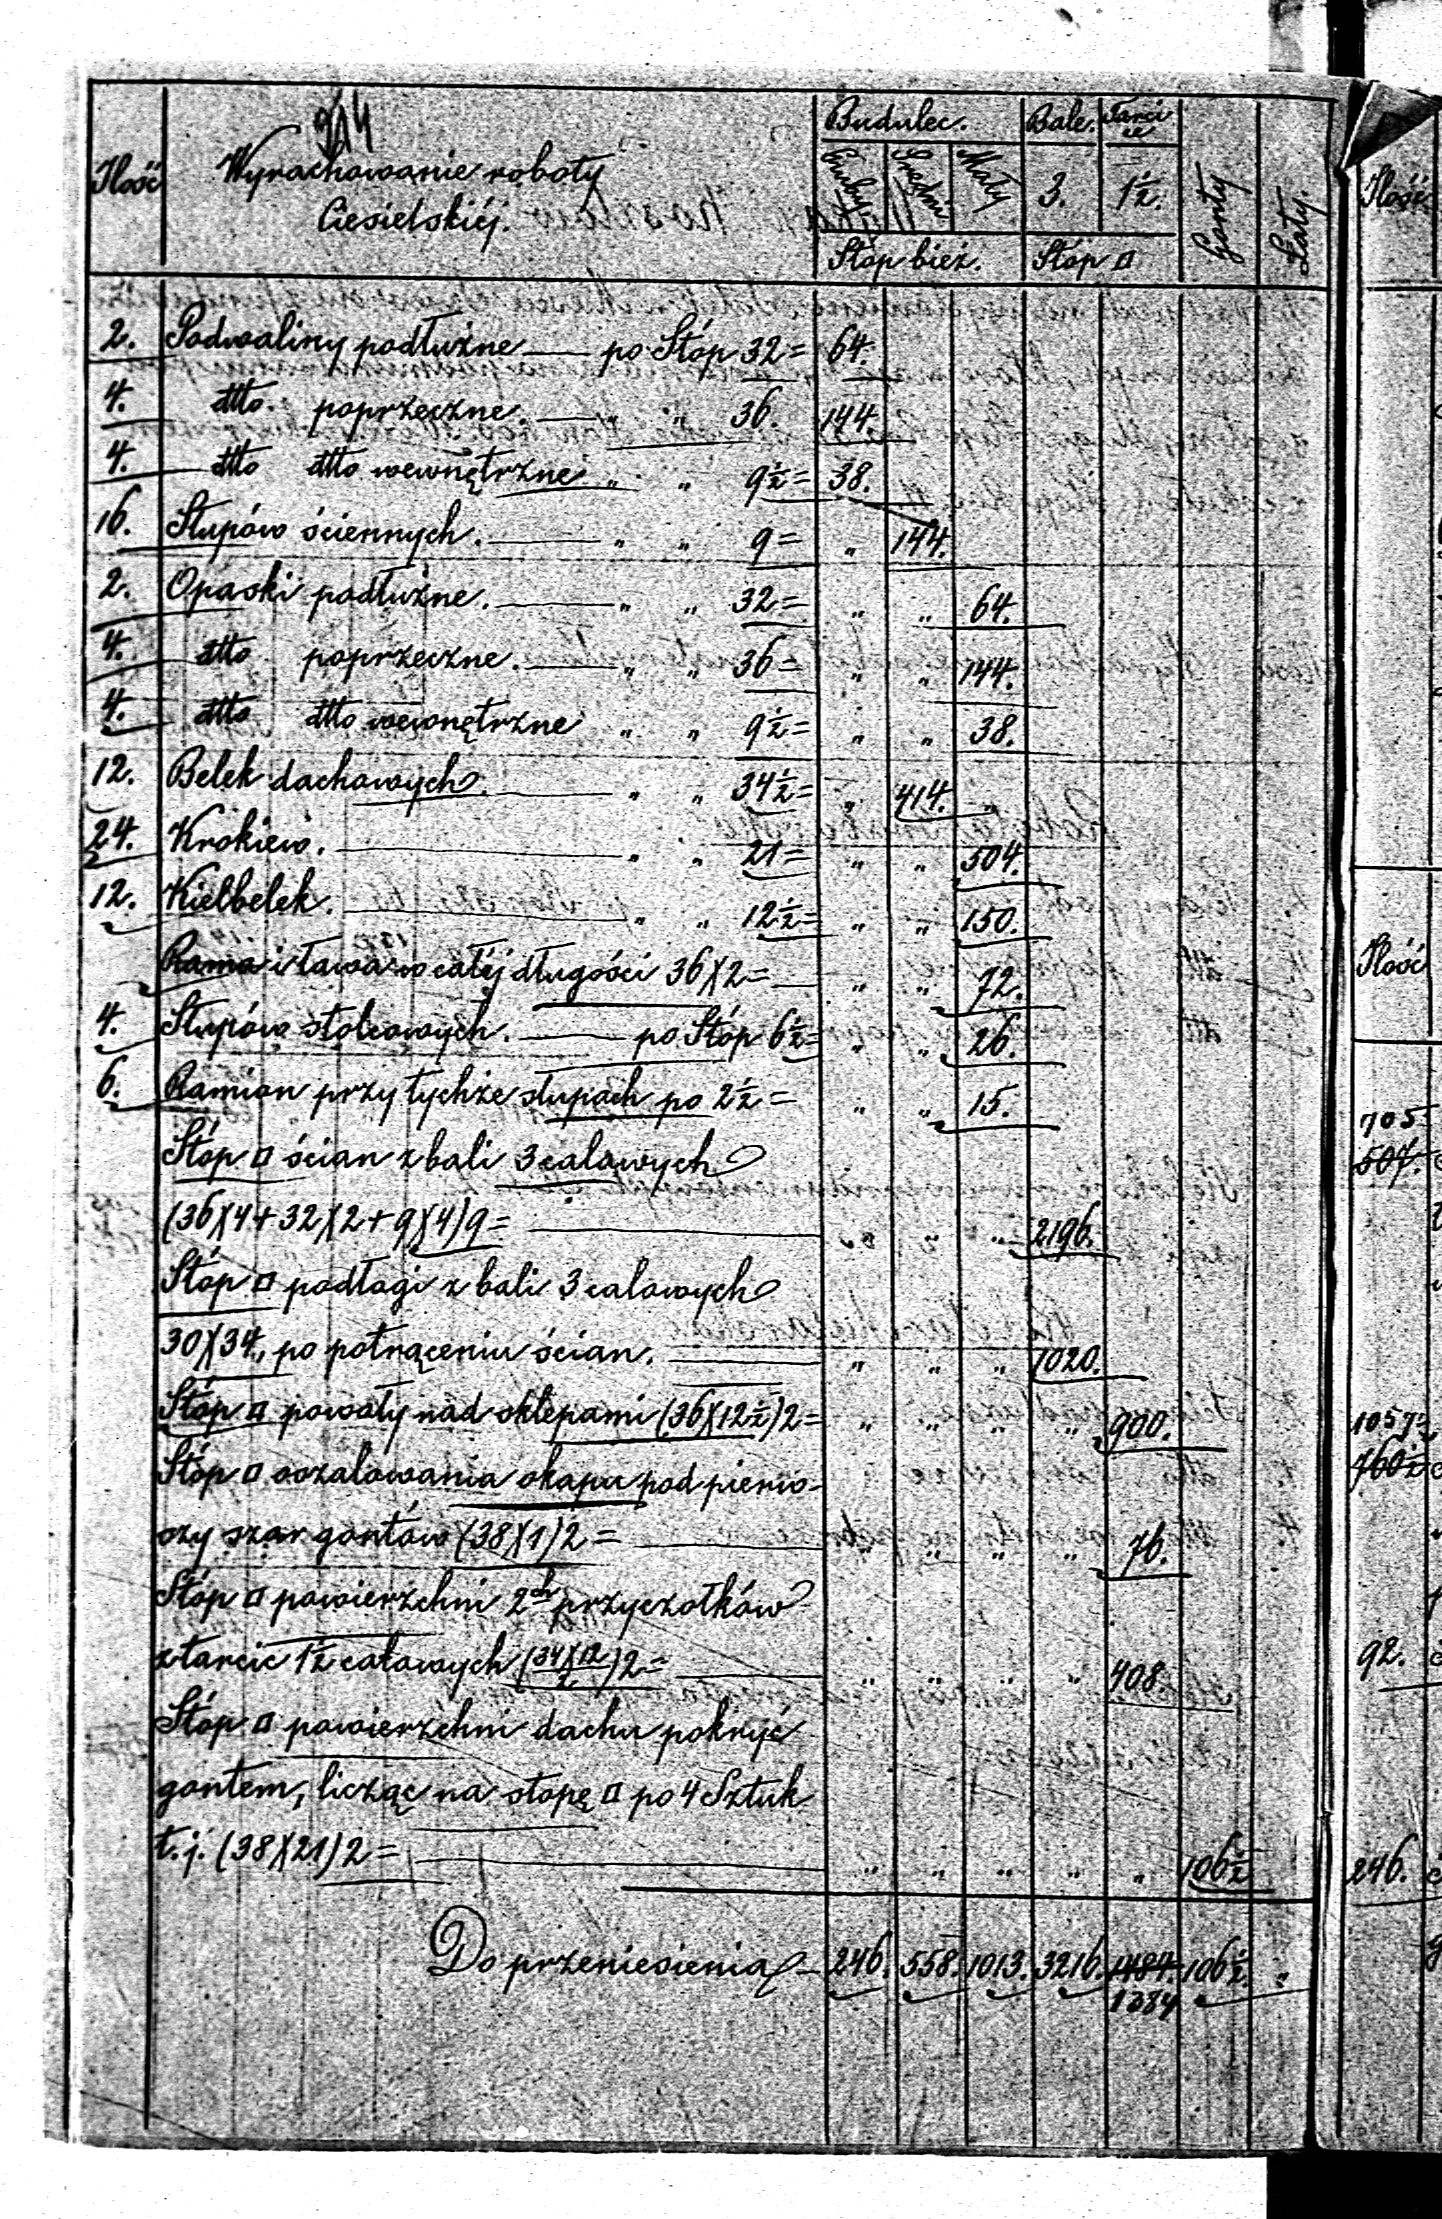 914
Ilość Wyrachowanie roboty Ciesielskiéj. Budulec. Bale. Tarcice Gonty Łaty. Ilość
Gruby Średni Mały 3. 1½.
Stóp bież. Stóp □
2. Podwaliny podłużne — po Stóp 32 = 64.
4. dtto. poprzeczne. — „ „ 36. 144.
4. dtto dtto wewnętrzne „ „ 9½ = 38.
16. Słupów ściennych. — „ „ 9 = „ 144.
2. Opaski podłużne. — „ „ 32 = „ „ 64.
4. dtto poprzeczne. — „ „ 36 = „ „ 144.
4. dtto dtto wewnętrzne „ „ 9½ = „ „ 38.
12. Belek dachowych. — „ „ 34½ = „ 414. „
24. Krokiew. — „ „ 21 = „ „ 504.
12. Kielbelek. — „ „ 12½ = „ „ 150.
Rama i ława w całéj długości 36)(2 = — „ „ 72.
4. Słupów stolcowych. — po Stóp 6½ = „ „ 26.
6. Ramion przy tychże słupach po 2½ = „ „ 15.
Stóp □ ścian z bali 3 calowych
(36)(4 + 32)(2 + 9)(4) 9 = — „ „ „ 2196.
Stóp □ podłogi z bali 3 calowych
30)(34, po potrąceniu ścian. — „ „ „ 1020.
Stóp □ powały nad sklepami (36)(12½) 2 = „ „ „ „ 900.
Stóp □ oszalowania okapu pod pierw-
szy szar gontów (38)(1) 2 = — „ „ „ „ 76.
Stóp □ powierzchni 2ch przyczołków
z tarcic 1½ calowych (34)(12/2) 2 = — „ „ „ „ 408
Stóp □ powierzchni dachu pokryć
gontem, licząc na stopę □ po 4 Sztuk
t. j. (38)(21) 2 = — „ „ „ „ „ 106½
Do przeniesienia — 246. 558. 1013. 3216. 1484. 106½. „
1384
Ilość
705
507.
1057½
760½
92.
246.